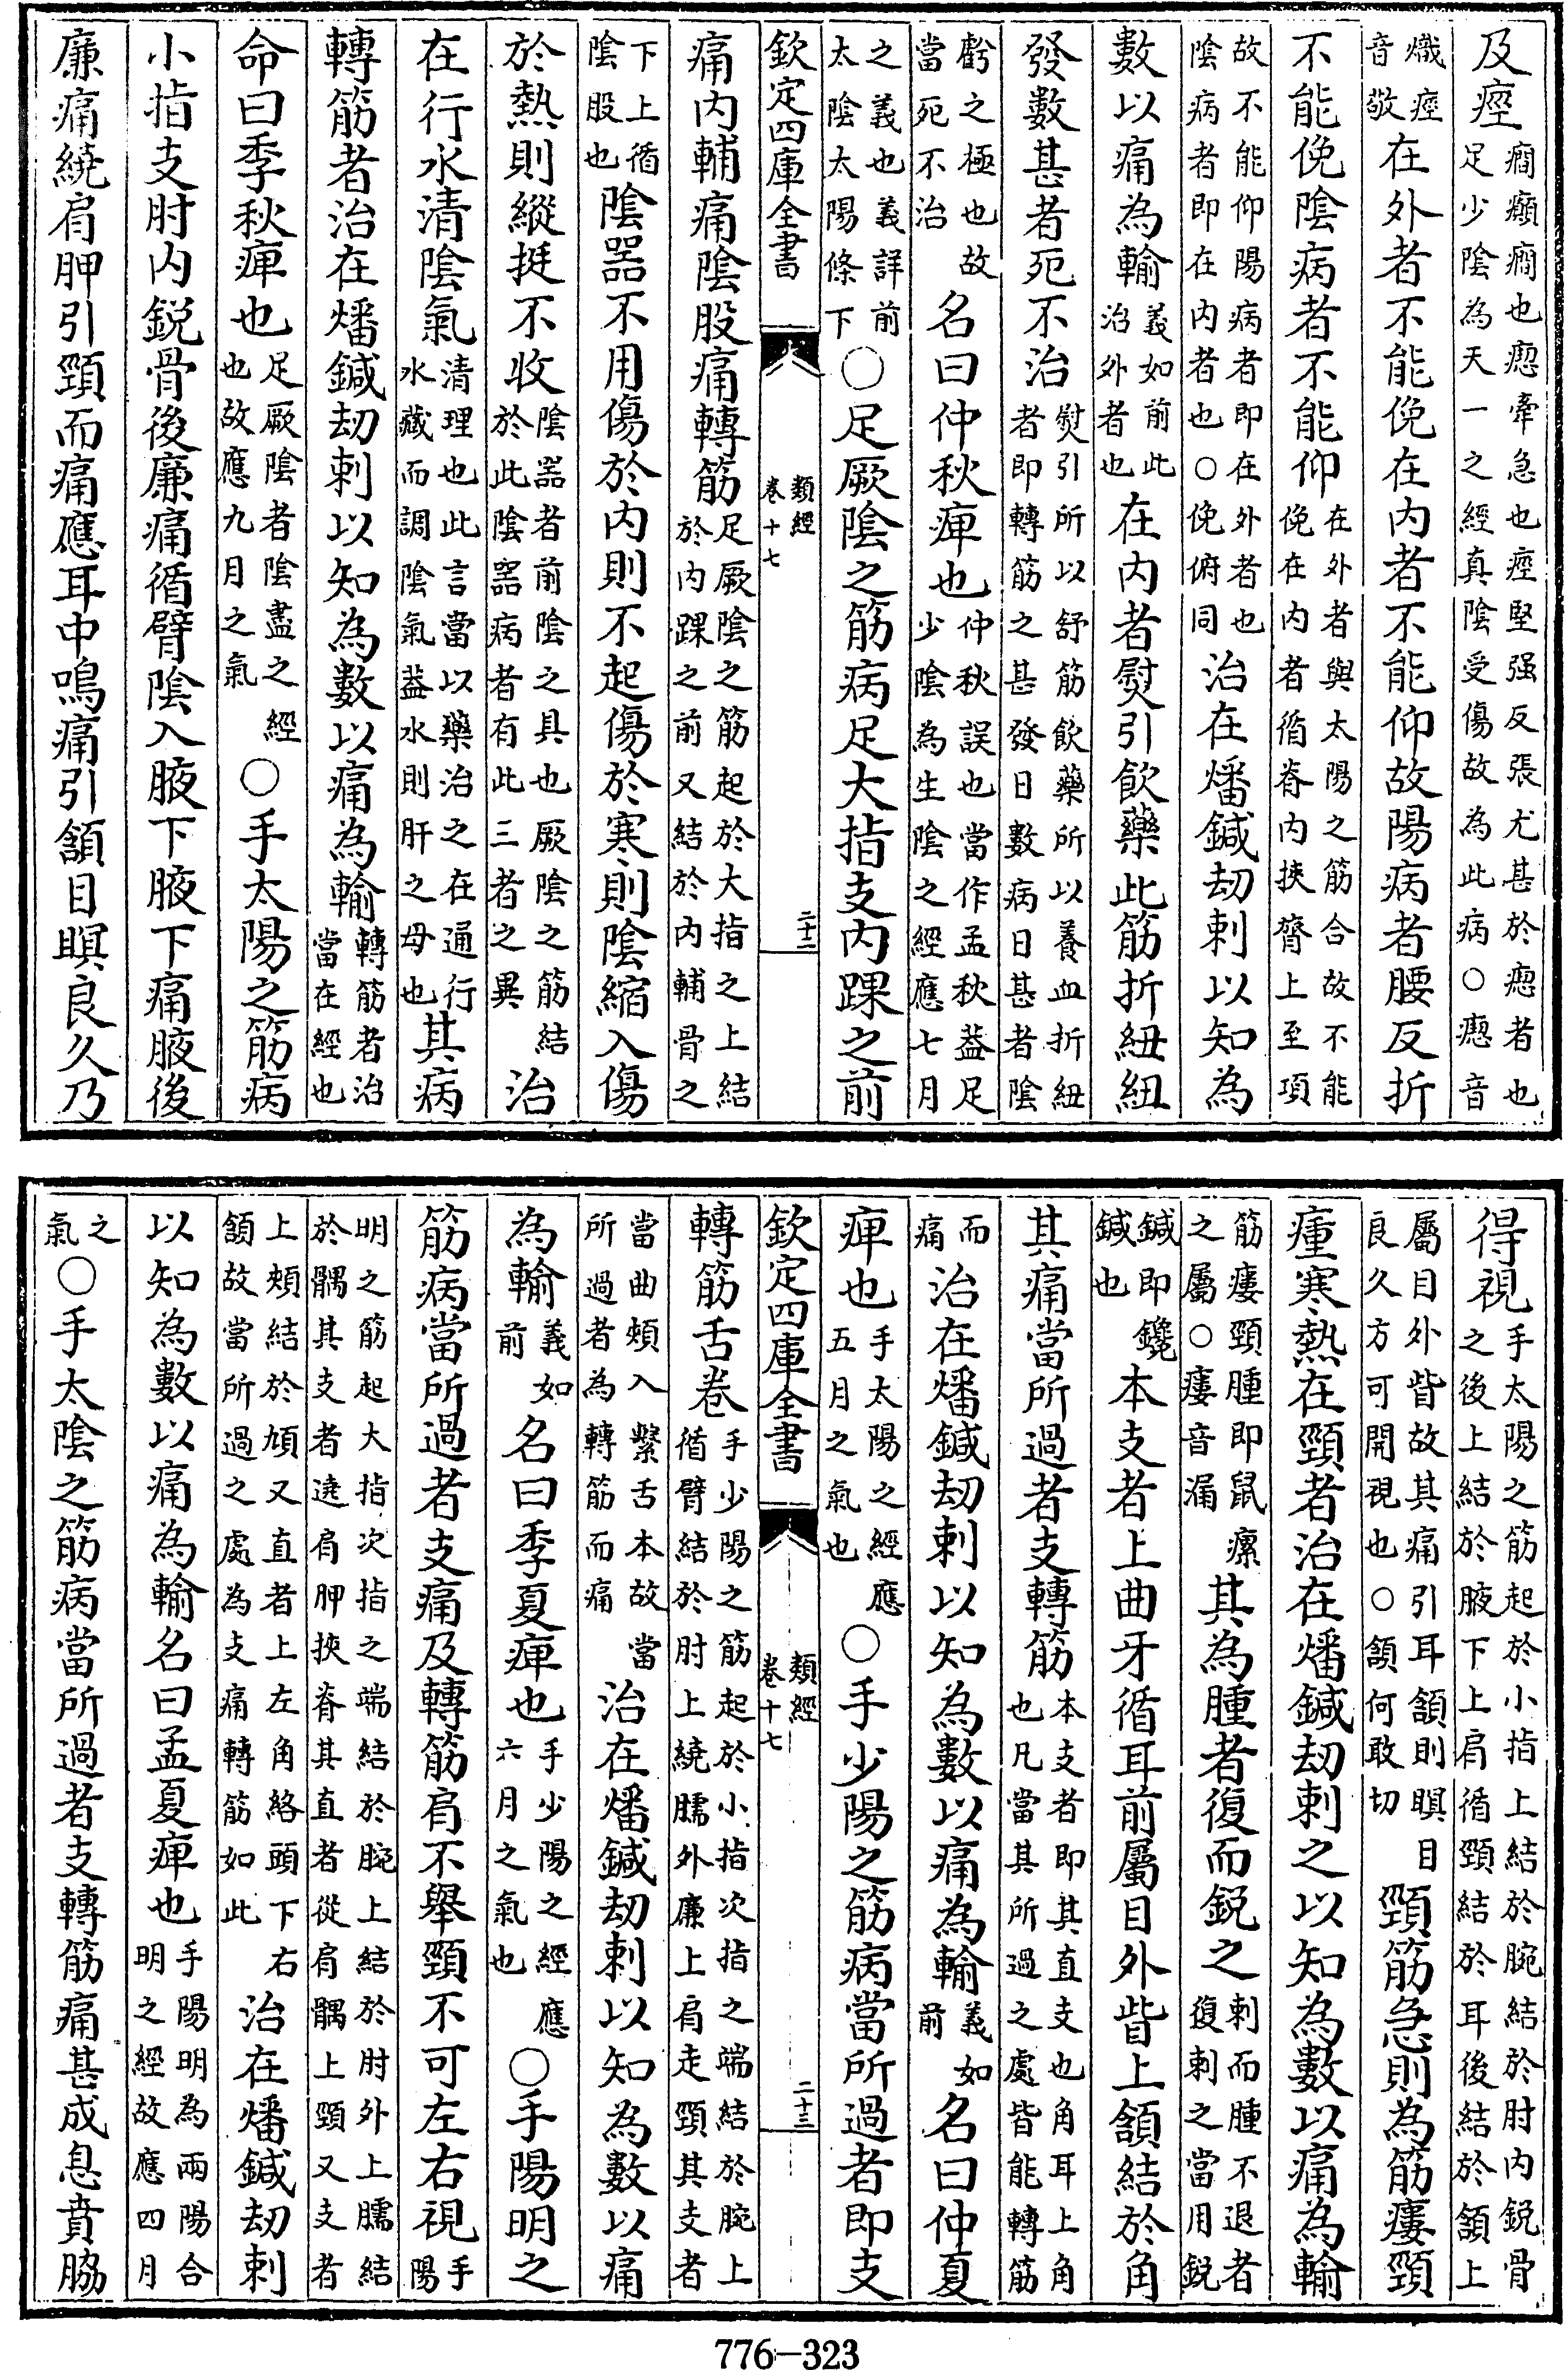 及痙癎癲癎也瘛牽急也痙堅强反張尤甚於瘛者也足少陰為天一之經真陰受傷故為此病○瘛音
熾痙音敬在外者不能俛在内者不能仰故陽病者腰反折
不能俛陰病者不能仰在外者與太陽之筋合故不能俛在内者循脊内挾膂上至項
故不能仰陽病者即在外者也陰病者即在内者也○俛俯同治在燔鍼劫刺以知為
數以痛為輸義如前此治外者也在内者熨引飲藥此筋折紐紐
發數甚者死不治熨引所以舒筋飲藥所以養血折紐者即轉筋之甚發日數病日甚者陰
虧之極也故當死不治名曰仲秋痺也仲秋誤也當作孟秋葢足少陰為生陰之經應七月
之義也義詳前太陰太陽條下○足厥陰之筋病足大指支内踝之前
欽定四庫全書
類經卷十七
二十二
痛内輔痛陰股痛轉筋足厥陰之筋起於大指之上結於内踝之前又結於内輔骨之
下上循陰股也陰器不用傷於内則不起傷於寒則陰縮入傷
於熱則縱挺不收陰器者前陰之具也厥陰之筋結於此陰器病者有此三者之異治
在行水清陰氣清理也此言當以藥治之在通行水藏而調陰氣葢水則肝之母也其病
轉筋者治在燔鍼劫刺以知為數以痛為輸轉筋者治當在經也
命曰季秋痺也足厥陰者陰盡之經也故應九月之氣○手太陽之筋病
小指支肘内鋭骨後廉痛循臂陰入腋下腋下痛腋後
廉痛繞肩胛引頸而痛應耳中鳴痛引頷目瞑良久乃
得視手太陽之筋起於小指上結於腕結於肘内鋭骨之後上結於腋下上肩循頸結於耳後結於頷上
屬目外眥故其痛引耳頷則瞑目良久方可開視也○頷何敢切頸筋急則為筋瘻頸
瘇寒熱在頸者治在燔鍼劫刺之以知為數以痛為輸
筋瘻頸腫即鼠瘰之屬○瘻音漏其為腫者復而鋭之刺而腫不退者復刺之當用鋭
鍼鍼即鑱鍼也本支者上曲牙循耳前屬目外眥上頷結於角
其痛當所過者支轉筋本支者即其直支也角耳上角也凡當其所過之處皆能轉筋
而痛治在燔鍼劫刺以知為數以痛為輸義如前名曰仲夏
痺也手太陽之經應五月之氣也○手少陽之筋病當所過者即支
欽定四庫全書
類經卷十七
二十三
轉筋舌卷手少陽之筋起於小指次指之端結於腕上循臂結於肘上繞臑外廉上肩走頸其支者
當曲頰入繫舌本故當所過者為轉筋而痛治在燔鍼劫刺以知為數以痛
為輸義如前名曰季夏痺也手少陽之經應六月之氣也○手陽明之
筋病當所過者支痛及轉筋肩不舉頸不可左右視手陽
明之筋起大指次指之端結於腕上結於肘外上臑結於髃其支者遶肩胛挾脊其直者從肩髃上頸又支者
上頰結於頄又直者上左角絡頭下右頷故當所過之處為支痛轉筋如此治在燔鍼劫刺
以知為數以痛為輸名曰孟夏痺也手陽明為兩陽合明之經故應四月
之氣○手太陰之筋病當所過者支轉筋痛甚成息賁脇
776-323